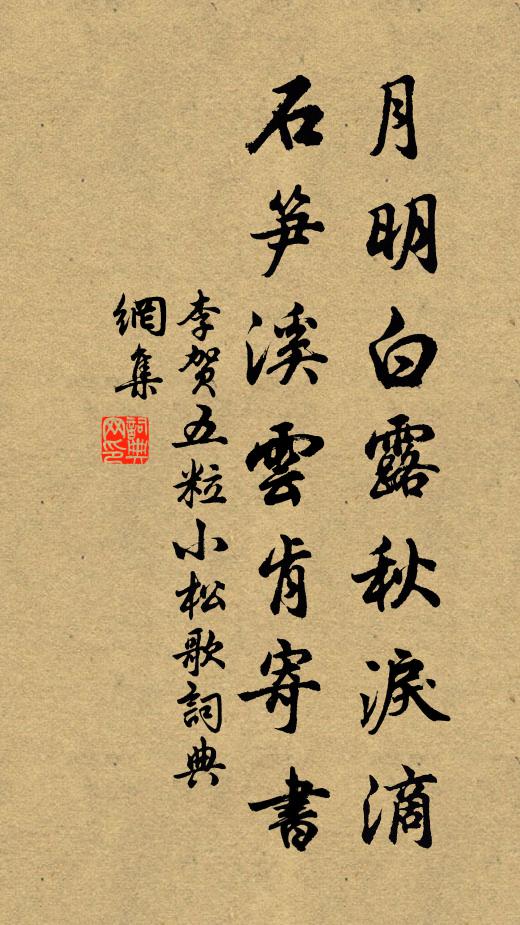 月明白露秋淚滴
石笋溪雲肯寄書
李賀五粒小松歌詞典
網集
詞典
网印